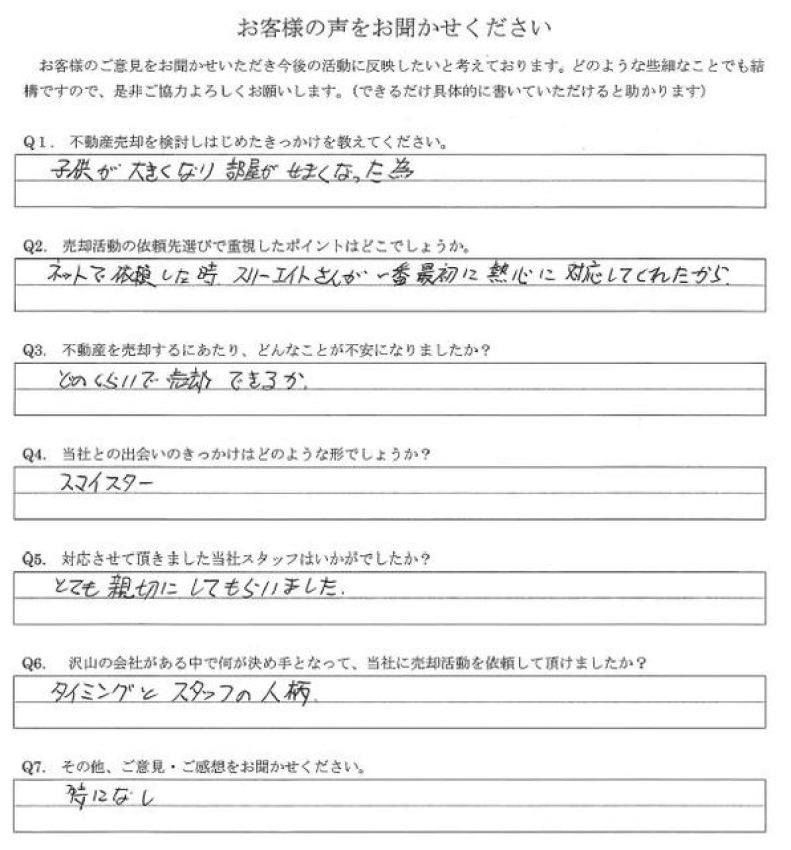 お客様の声をお聞かせください
お客様のご意見をお聞かせいただき今後の活動に反映したいと考えております。どのような些細なことでも結
構ですので、是非ご協力よろしくお願いします。（できるだけ具体的に書いていただけると助かります）
Q1. 不動産売却を検討しはじめたきっかけを教えてください。
子供が 大きくなり 部屋が せまくなった為
Q2. 売却活動の依頼先選びで重視したポイントはどこでしょうか。
ネットで依頼した時 スリーエイトさんが 一番最初に 熱心に 対応してくれたから.
Q3. 不動産を売却するにあたり、どんなことが不安になりましたか？
どのくらいで 売却 できるか.
Q4. 当社との出会いのきっかけはどのような形でしょうか？
スマイスター
Q5. 対応させて頂きました当社スタッフはいかがでしたか？
とても 親切に してもらいました.
Q6. 沢山の会社がある中で何が決め手となって、当社に売却活動を依頼して頂けましたか？
タイミングと スタッフの 人柄.
Q7. その他、ご意見・ご感想をお聞かせください。
特になし